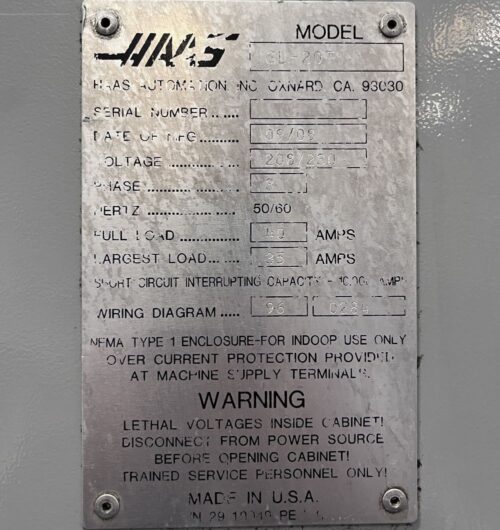 HAAS
MODEL SL-20T
HAAS AUTOMATION INC OXNARD CA. 93030
SERIAL NUMBER ......
DATE OF MFG ........... 08/08
VOLTAGE ................ 208/230
PHASE ....................
HERTZ ..................... 50/60
FULL LOAD .............. AMPS
LARGEST LOAD .... 35 AMPS
SHORT CIRCUIT INTERRUPTING CAPACITY - 10,000 AMP
WIRING DIAGRAM ..... 96
NEMA TYPE 1 ENCLOSURE-FOR INDOOR USE ONLY
OVER CURRENT PROTECTION PROVIDED
AT MACHINE SUPPLY TERMINALS.
WARNING
LETHAL VOLTAGES INSIDE CABINET!
DISCONNECT FROM POWER SOURCE
BEFORE OPENING CABINET!
TRAINED SERVICE PERSONNEL ONLY!
MADE IN U.S.A.